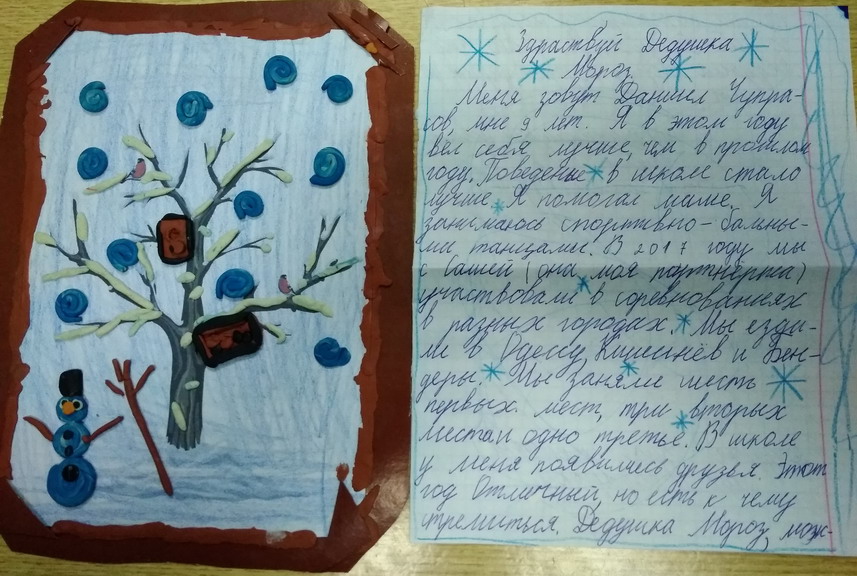 Здраствуй Дедушка
Мороз.
Меня зовут Даниил Чупра-
сов, мне 9 лет. Я в этом году
вёл себя лучше, чем в прошлом
году. Поведение в школе стало
лучше. Я помогал маме. Я
занимаюсь спортивно-бальны-
ми танцами. В 2017 году мы
с Сашей (она моя партнёрша)
участвовали в соревнованиях
в разных городах. Мы езди-
ли в Одессу, Кишинёв и Бен-
деры. Мы заняли шесть
первых мест, три вторых
места и одно третье. В школе
у меня появились друзья. Этот
год Отличный, но есть к чему
стремиться. Дедушка Мороз, мож-